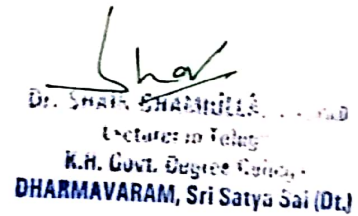 Dr. SHAIK SHAMIULLA
Lecturer in Telugu
K.H. Govt. Degree College
DHARMAVARAM, Sri Satya Sai (Dt.)